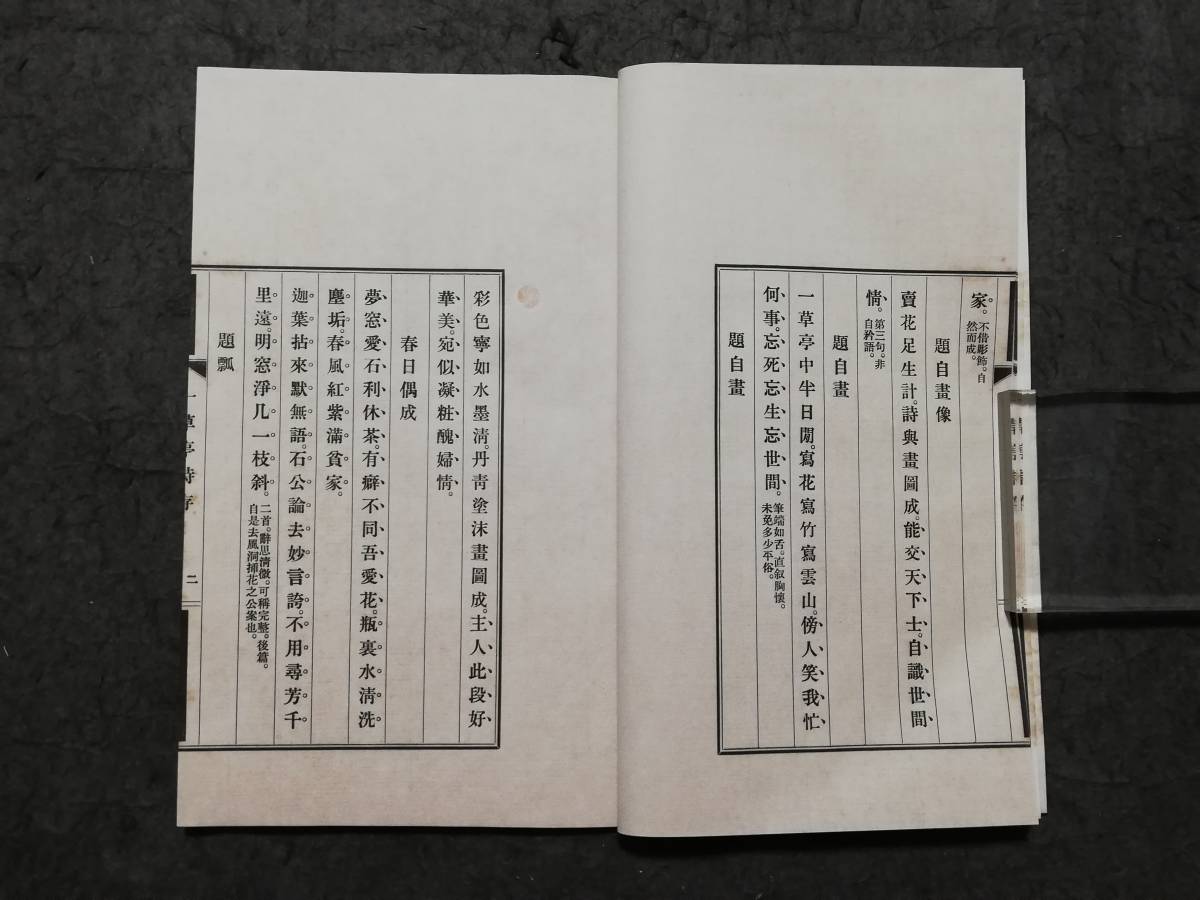 家。不借彫飾。自
然而成。
題自畫像
賣花足生計。詩與畫圖成。能交天下士。自識世間
情。第三句。非
自矜語。
題自畫
一草亭中半日閒。寫花寫竹寫雲山。傍人笑我忙
何事。忘死忘生忘世間。筆端如舌。直叙胸懷。
未免多少平俗。
題自畫
彩色寧如水墨淸。丹靑塗沫畫圖成。主人此段好
華美。宛似凝粧醜婦情。
春日偶成
夢窓愛石利休茶。有癖不同吾愛花。瓶裏水淸洗
塵垢。春風紅紫滿貧家。
迦葉拈來默無語。石公論去妙言誇。不用尋芳千
里遠。明窓淨几一枝斜。二首。辭思淸微。可稱完整。後篇。
自是去風洞挿花之公案也。
題瓢
一草亭詩存
二